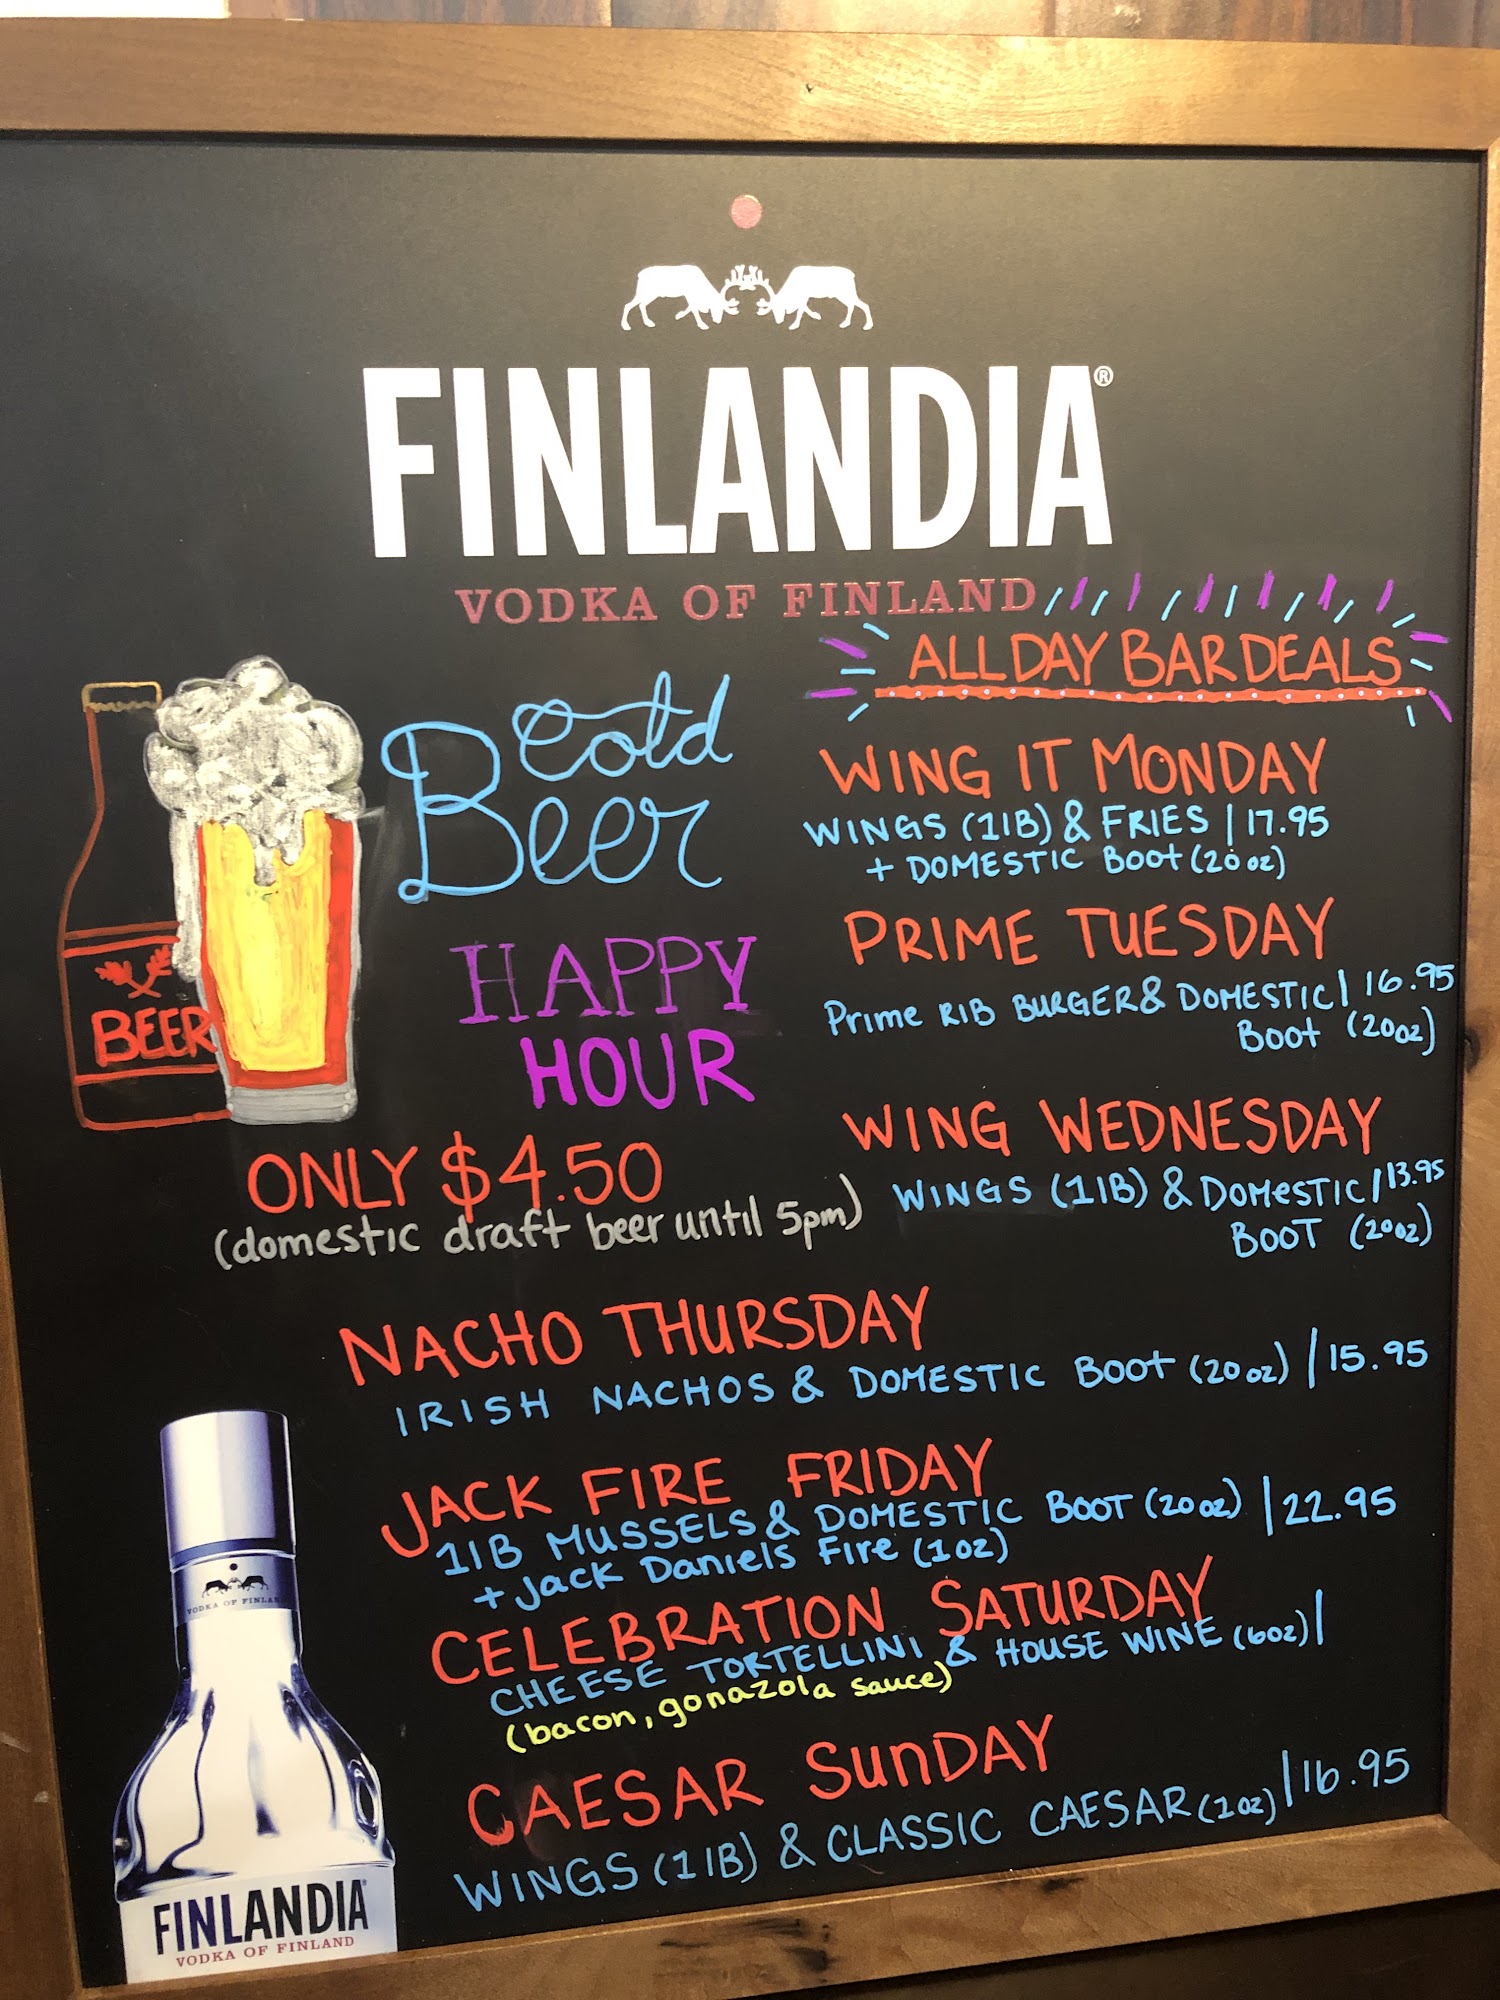 FINLANDIA®
VODKA OF FINLAND
ALL DAY BAR DEALS
Cold
Beer
HAPPY
HOUR
ONLY $4.50
(domestic draft beer until 5pm)
BEER
WING IT MONDAY
WINGS (1lB) & FRIES | 17.95
+ DOMESTIC Boot (20 oz)
PRIME TUESDAY
Prime RIB BURGER & DOMESTIC | 16.95
Boot (20oz)
WING WEDNESDAY
WINGS (1lB) & DOMESTIC / 13.95
BOOT (20oz)
NACHO THURSDAY
IRISH NACHOS & DOMESTIC Boot (20 oz) / 15.95
JACK FIRE FRIDAY
1lB MUSSELS & DOMESTIC BOOT (20 oz) | 22.95
+ Jack Daniels Fire (1oz)
CELEBRATION SATURDAY
CHEESE TORTELLINI & HOUSE WINE (6oz) |
(bacon, gonazola sauce)
CAESAR SunDAY
WINGS (1lB) & CLASSIC CAESAR (1oz) | 16.95
VODKA OF FINLAN
FINLANDIA
VODKA OF FINLAND